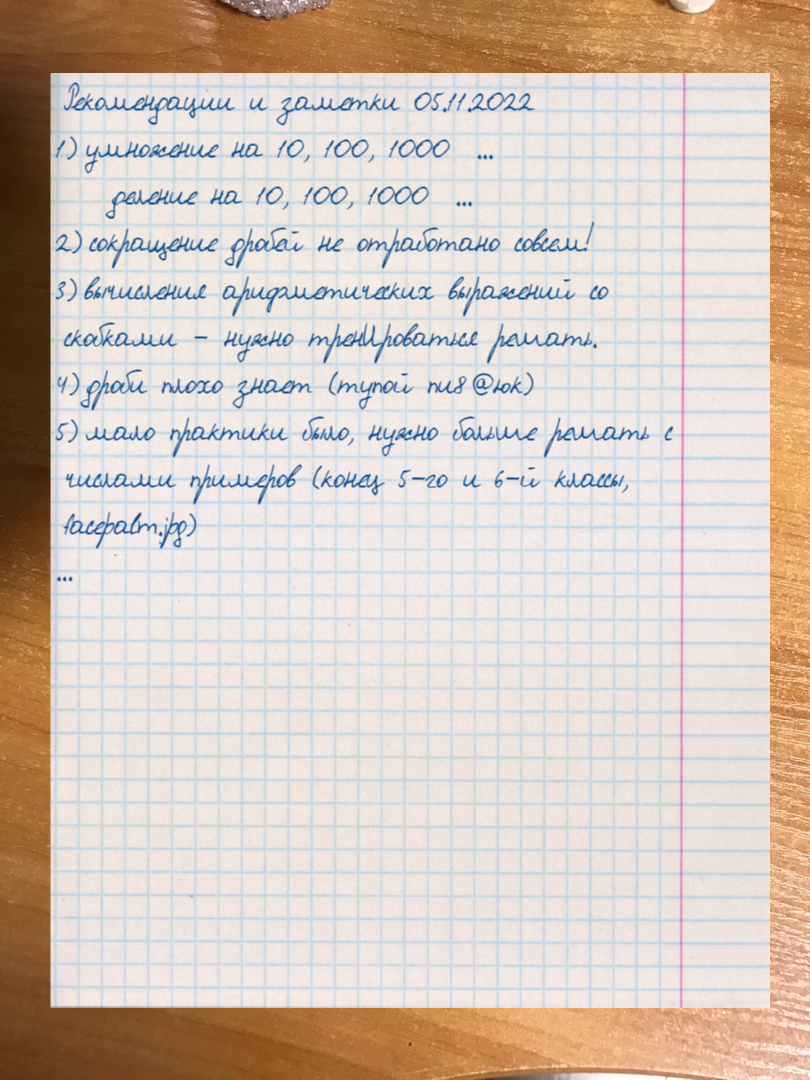 Рекомендации и заметки 05.11.2022
1) умножение на 10, 100, 1000 ...
деление на 10, 100, 1000 ...
2) сокращение дробей не отработано совсем!
3) вычисления арифметических выражений со
скобками – нужно тренИроваться решать.
4) дроби плохо знает (тупой пи8@юк)
5) мало практики было, нужно больше решать с
числами примеров (конец 5-го и 6-й классы,
facepalm.jpg)
...